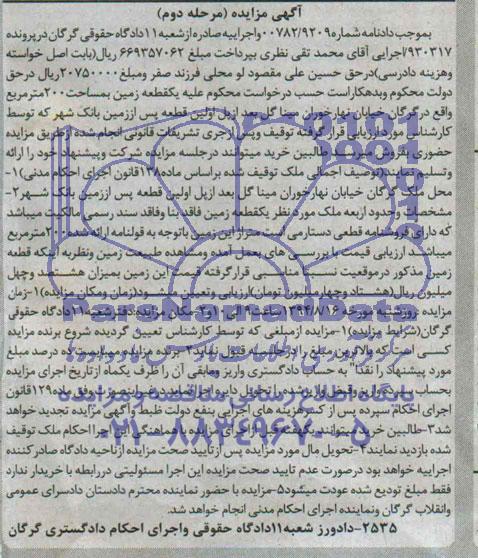 آگهی مزایده (مرحله دوم)
بموجب دادنامه شماره ۰۰۷۸۲/۹۲۰۹ واجراییه صادره از شعبه ۱۱ دادگاه حقوقی گرگان در پرونده
۹۳۰۳۱۷/اجرایی آقای محمد تقی نظری بپرداخت مبلغ ۶۶۹۳۵۷۰۶۲ ریال(بابت اصل خواسته
وهزینه دادرسی)درحق حسین علی مقصود لو محلی فرزند صفر ومبلغ ۲۰۷۵۰۰۰۰ ریال در حق
دولت محکوم وبدهکاراست حسب درخواست محکوم علیه یکقطعه زمین بمساحت ۲۰۰مترمربع
واقع در گرگان خیابان نهارخوران مینا گل بعد از پل اولین قطعه پس اززمین بانک شهر که توسط
کارشناس مورد ارزیابی قرار گرفته توقیف وپس ازجری تشریفات قانونی انجام شده ازطریق مزایده
حضوری بفروش میرسد طالبین خرید میتوانند درجلسه مزایده شرکت وپیشنهاد خود را ارائه
وتسلیم نمایند(توصیف اجمالی ملک توقیف شده براساس ماده۱۳۸قانون اجرای احکام مدنی)۱-
محل ملک گرگان خیابان نهارخوران مینا گل بعد ازپل اولین قطعه پس اززمین بانک شهر۲-
مشخصات وحدود اربعه ملک مورد نظر یکقطعه زمین فاقد بنا وفاقد سند رسمی مالکیت میباشد
که دارای فروشنامه قطعی دستارمی است متراژ این زمین باتوجه به قولنامه ارائه شده ۲۰۰مترمربع
میباشد ارزیابی قیمت با بررسی های بعمل آمده ومشاهده طبیعت زمین ونظربه اینکه قطعه
زمین مذکور درموقعیت نسبتا مناسبی قرارگرفته قیمت این زمین بمیزان هشتصد وچهل
میلیون ریال(هشتاد وچهارمیلیون تومان)ارزیابی وتعیین میشود(زمان ومکان مزایده)۱-زمان
مزایده روزشنبه مورخه ۱۳۹۴/۸/۱۶ ساعت۹الی۱۰و۲-مکان مزایده:دفترشعبه۱۱دادگاه حقوقی
گرگان(شرایط مزایده)۱-مزایده ازمبلغی که توسط کارشناس تعیین گردیده شروع برنده مزایده
کسی است که بالاترین مبلغ را درجلسه قبول نماید۲-برنده مزایده میبایست ده درصد مبلغ
مورد پیشنهاد را نقدا" به حساب دادگستری واریز ومابقی آن را ظرف یکماه ازتاریخ اجرای مزایده
بحساب سپرده واریز وقبض واریز شده را تحویل دایره اجرا نمایند درغیراینصورت وفق ماده۱۲۹قانون
اجرای احکام سپرده پس از کسرهزینه های اجرایی بنفع دولت ظبط وآگهی مزایده تجدید خواهد
شد۳-طالبین خرید میتوانند یکهفته قبل ازاجرای مزایده با هماهنگی این اجرا احکام ملک توقیف
شده بازدید نمایند۴-تحویل مال مورد مزایده پس ازتایید صحت مزایده ازناحیه دادگاه صادرکننده
اجراییه خواهد بود درصورت عدم تایید صحت مزایده این اجرا مسئولیتی دررابطه با خریدار ندارد
فقط مبلغ تودیع شده عودت میشود۵-مزایده با حضور نماینده محترم دادستان دادسرای عمومی
وانقلاب گرگان ونماینده اجرای احکام مدنی انجام خواهد شد.
۲۵۳۵-دادورز شعبه۱۱دادگاه حقوقی واجرای احکام دادگستری گرگان
پایگاه اطلاع رسانی مناقصه و مزایده
۰۲۱-۸۸۳۴۹۶۷۰-۵